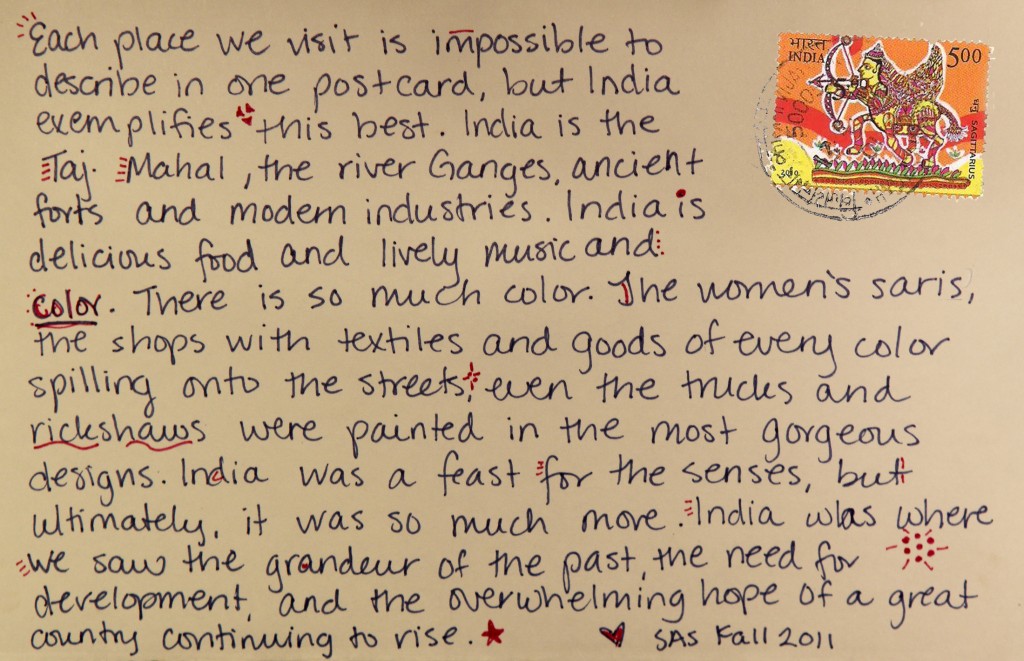 Each place we visit is impossible to
describe in one postcard, but India
exemplifies this best. India is the
Taj Mahal, the river Ganges, ancient
forts and modern industries. India is
delicious food and lively music and
color. There is so much color. The women's saris,
the shops with textiles and goods of every color
spilling onto the streets, even the trucks and
rickshaws were painted in the most gorgeous
designs. India was a feast for the senses, but
ultimately, it was so much more. India was where
we saw the grandeur of the past, the need for
development, and the overwhelming hope of a great
country continuing to rise.
SAS Fall 2011
भारत
INDIA
500
धनु SAGITTARIUS
2010